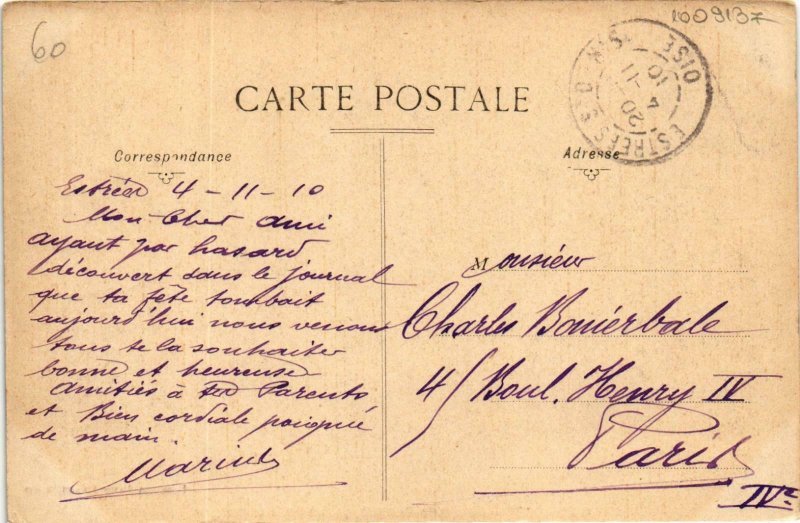 60
1009137
CARTE POSTALE
ESTRÉES-ST-DENIS
OISE
20
4 -11
10
Correspondance
Adresse
Estrées 4 - 11 - 10
Mon Cher ami
ayant par hasard
découvert dans le journal
que ta fête tombait
aujourd'hui nous venons
tous te la souhaiter
bonne et heureuse
Amitiés à tes Parents
et Bien cordiale poignée
de main.
Monsieur
Charles
4 Boul. Henry IV
Paris
IVe